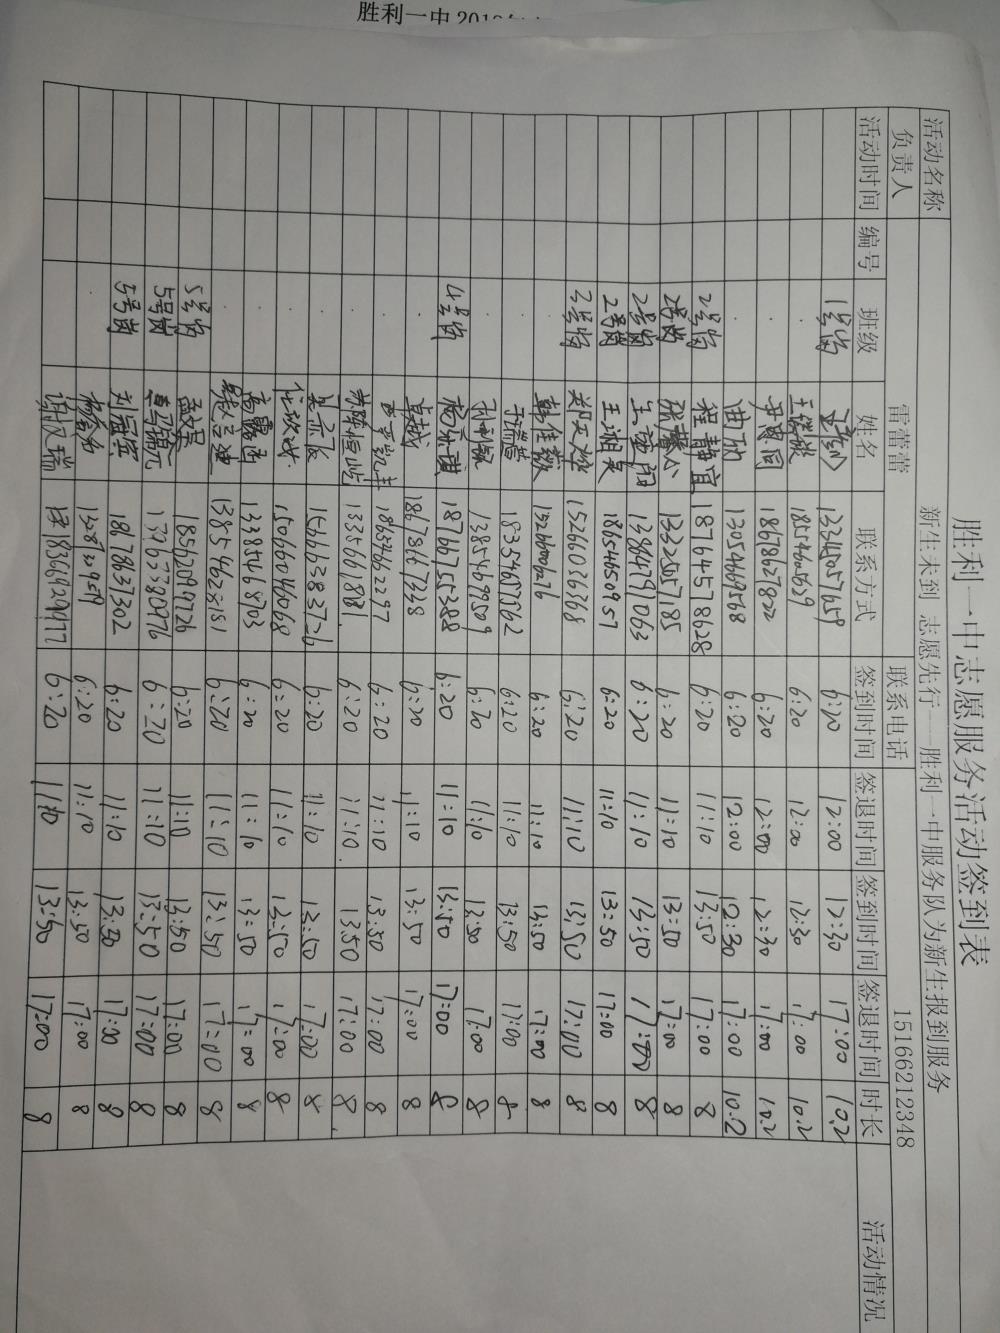 胜利一中2018年
胜利一中志愿服务活动签到表
活动名称 新生未到 志愿先行——胜利一中服务队为新生报到服务
负责人 雷蕾蕾 联系电话 15166212348
活动时间 编号 班级 姓名 联系方式 签到时间 签退时间 签到时间 签退时间 时长 活动情况
1号岗 6:20 12:00 12:30 17:00 10.2
6:20 12:00 12:30 17:00 10.2
18678677822 6:20 12:00 12:30 17:00 10.2
曲弘 13054669568 6:20 12:00 12:30 17:00 10.2
2号岗 程静宜 18764578628 6:20 11:10 13:50 17:00 8
2号岗 张馨心 13325557185 6:20 11:10 13:50 17:00 8
2号岗 13864791063 6:20 11:10 13:50 17:00 8
2号岗 王湘昊 18654659957 6:20 11:10 13:50 17:00 8
2号岗 15266036368 6:20 11:10 13:50 17:00 8
韩佳敏 6:20 11:10 13:50 17:00 8
于瑞喆 18354677562 6:20 11:10 13:50 17:00 8
13854699509 6:20 11:10 13:50 17:00 8
4号岗 18766752388 6:20 11:10 13:50 17:00 8
卓越 18678667348 6:20 11:10 13:50 17:00 8
18654662297 6:20 11:10 13:50 17:00 8
1335661881 6:20 11:10 13:50 17:00 8
吴尔辰 1666383726 6:20 11:10 13:50 17:00 8
15060046068 6:20 11:10 13:50 17:00 8
高露雨 13385468703 6:20 11:10 13:50 17:00 8
13854623181 6:20 11:10 13:50 17:00 8
5号岗 孟文昊 18562097726 6:20 11:10 13:50 17:00 8
5号岗 17663380976 6:20 11:10 13:50 17:00 8
5号岗 刘冠英 18678637302 6:20 11:10 13:50 17:00 8
6:20 11:10 13:50 17:00 8
谢风瑞 18366929477 6:20 11:10 13:50 17:00 8